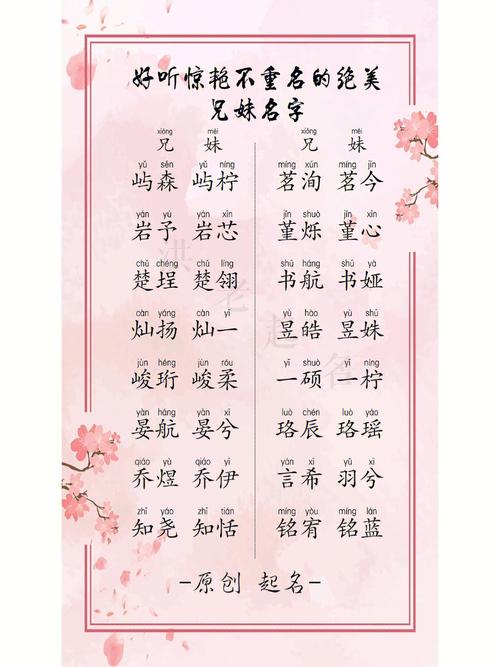 好听惊艳不重名的绝美
兄妹名字
xiōng mèi xiōng mèi
兄 妹 兄 妹
yǔ sēn yǔ níng míng xún míng jīn
屿森 屿柠 茗洵 茗今
yán yú yán xīn jǐn shuò jǐn xīn
岩予 岩芯 堇烁 堇心
chǔ chéng chǔ líng shū háng shū yà
楚埕 楚翎 书航 书娅
càn yáng càn yī yù hào yù shū
灿扬 灿一 昱皓 昱姝
jùn héng jùn róu yī shuò yī níng
峻珩 峻柔 一硕 一柠
yàn háng yàn xī luò chén luò yáo
晏航 晏兮 珞辰 珞瑶
qiáo yù qiáo yī yán xī yǔ xī
乔煜 乔伊 言希 羽兮
zhī yáo zhī tián míng yòu míng lán
知尧 知恬 铭宥 铭蓝
洪老起名
-原创 起名-